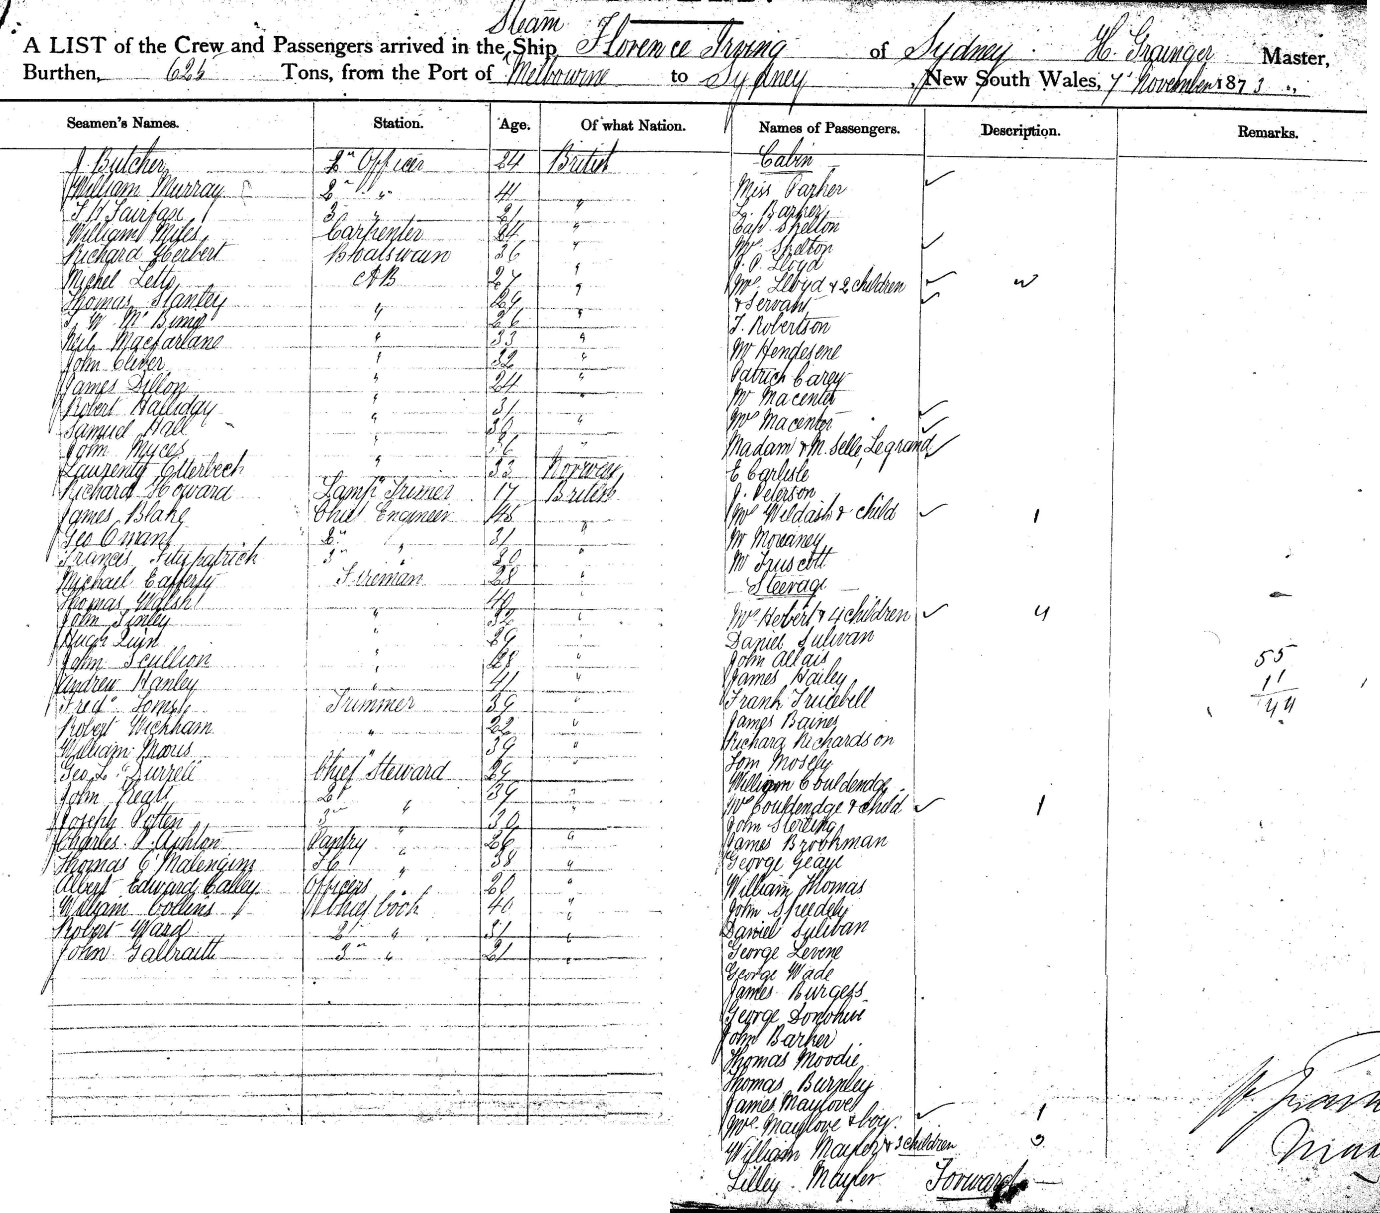 Steam
A LIST of the Crew and Passengers arrived in the Ship Florence Irving of Sydney H. Grainger Master,
Burthen, 625 Tons, from the Port of Melbourne to Sydney, New South Wales, 7 November 1873
Seamen's Names. Station. Age. Of what Nation.
J Butcher Officer 24 British
William Murray 2 " " 41 "
Fairfax 3 " 21 "
William Miles Carpenter 24 "
Richard Herbert Boatswain 36 "
Michel Letto AB 27 "
Thomas Stanley 29 "
" 26 "
Neil Macfarlane " 33 "
John Oliver " 32 "
James Dillon " 24 "
Robert Halliday " 31 "
Samuel Hall " 30
John Myces " 36 "
" 33 Norway
Richard Howard Lamp Trimer 17 British
James Blake Chief Engineer 45
Geo Oman 2" 31 "
Francis Fitzpatrick 3" " 30 "
Michael Cafferty Fireman 28 "
Thomas Walsh 40 "
John Finley " 32 "
Hugh Quin " 29 "
John Scullion " 28 "
Andrew Hanley " 41 "
Fred Trimmer 39 "
Robert Wickham " 22 "
William 39 "
Geo L. Durrell Chief Steward 29
John 2" " 39 "
Joseph Potten 3" " 30 "
Charles Ashton Pantry " 26 "
Thomas " 38 "
Albert Edward Calley Officers " 20 "
William Collins Chief Cook 40 "
Robert Ward 2" " 31 "
John Galbraith 3" " 21 "
Names of Passengers. Description. Remarks.
Cabin
Miss Parker
L. Barker
Cap Skelton
Mrs Skelton
J. P. Lloyd
Mrs Lloyd & 2 children
& Servant
T. Robertson
Mr
Patrick Carey
Mr
Mrs
Madam & M.selle Legrand
E Carlisle
J. Peterson
Mrs & child 1
Mr
Mr Truscott
Steerage
Mrs Hebert & 4 children 4
Daniel Sulivan
John Allais 55
James Hailey 11
Frank 44
James Baines
Richard Richardson
Tom Mosely
William Couldendge
Mrs Couldendge & child 1
John Sterling
James Brookman
George Geaye
William Thomas
John Speedely
Daniel Sulivan
George Levene
George Wade
James Burgess
George Donohue
John Barker
Thomas Moodie
Thomas Burnley
James Maylove
Mrs Maylove & boy 1
William Mayler & 3 children 3
Lilley Mayler Forward